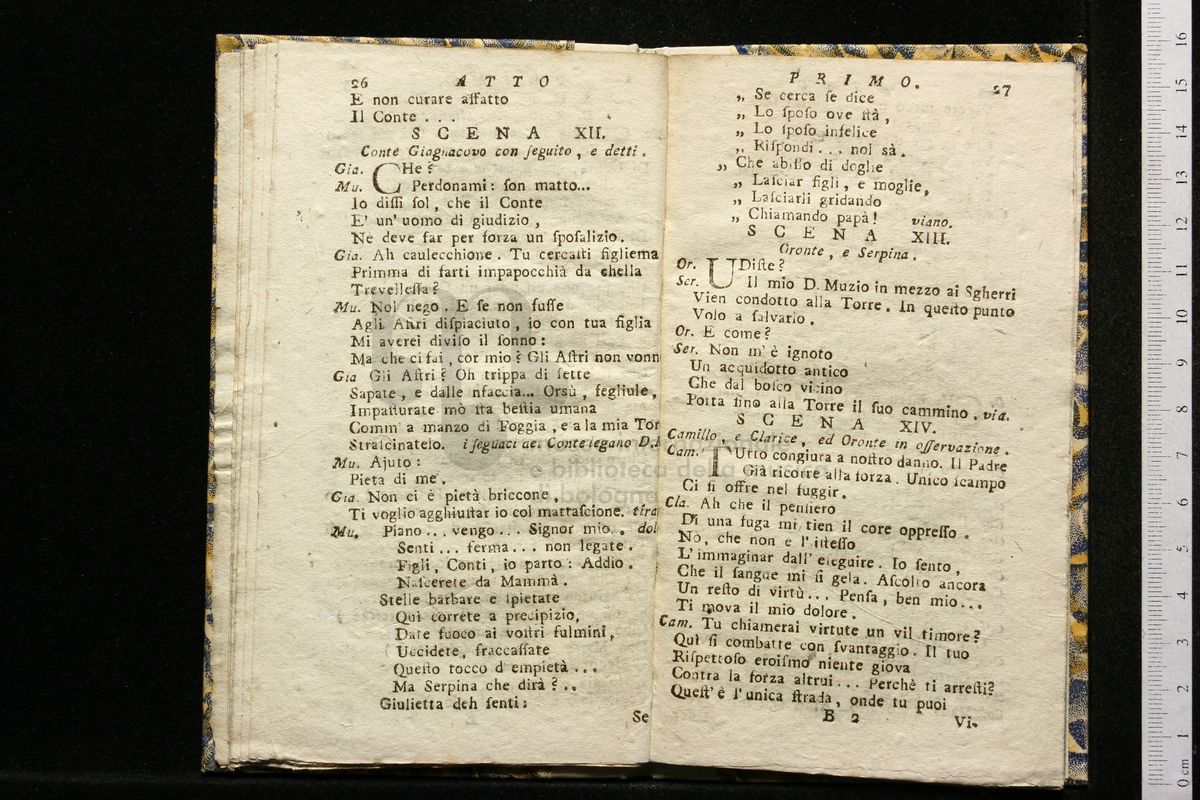 26 ATTO
E non curare affatto
Il Conte . . .
SCENA XII.
Conte Giagnacovo con ſeguito , e detti .
Gia. CHe ?
Mu. Perdonami : ſon matto...
Io diſſi ſol , che il Conte
E' un' uomo di giudizio ,
Nè deve far per forza un ſpoſalizio .
Gia. Ah caulecchione . Tu cercaſti figliema
Primma di farti impapocchià da chella
Trevelleſſa ?
Mu. Nol nego . E ſe non fuſſe
Agli Aſtri diſpiaciuto , io con tua figlia
Mi averei diviſo il ſonno :
Ma che ci fai , cor mio ? Gli Aſtri non vonn
Gia Gli Aſtri ? Oh trippa di ſette
Sapate , e dalle nfaccia... Orsù , ſegliule ,
Impaſturate mò ſta beſtia umana
Comm' a manzo di Foggia , e a la mia Tor
Straſcinatelo . i ſeguaci del Conte legano D.
Mu. Ajuto :
Pieta di me .
Gia. Non ci è pietà briccone ,
Ti voglio agghiuſtar io col mattaſcione. tira
Mu. Piano . . . vengo . . . Signor mio . . dol
Senti . . . ferma . . . non legate .
Figli , Conti , io parto : Addio .
Naſcerete da Mammà .
Stelle barbare e ſpietate
Quì correte a precipizio,
Date fuoco ai voſtri fulmini,
Uccidete, fraccaſſate
Queſto tocco d empietà . . .
Ma Serpina che dirà ? . .
Giulietta deh ſenti :
Se
PRIMO. 27
„ Se cerca ſe dice
„ Lo ſpoſo ove ſtà ,
„ Lo ſpoſo infelice
„ Riſpondi . . . nol sà .
„ Che abiſſo di doglie
„ Laſciar figli , e moglie,
„ Laſciarli gridando
„ Chiamando papà ! viano.
SCENA XIII.
Oronte , e Serpina .
Or. UDiſte ?
Ser. Il mio D. Muzio in mezzo ai Sgherri
Vien condotto alla Torre . In queſto punto
Volo a ſalvarlo .
Or. E come ?
Ser. Non m' è ignoto
Un acquidotto antico
Che dal boſco vicino
Porta ſino alla Torre il ſuo cammino . via.
SCENA XIV.
Camillo , e Clarice , ed Oronte in oſſervazione .
Cam. TUtto congiura a noſtro danno. Il Padre
Già ricorre alla forza . Unico ſcampo
Ci ſi offre nel fuggir .
Cla. Ah che il penſiero
Di una fuga mi tien il core oppreſſo .
Nò, che non e l'iſteſſo
L' immaginar dall' eſeguire . Io ſento ,
Che il ſangue mi ſi gela . Aſcolto ancora
Un reſto di virtù . . . Penſa , ben mio . . .
Ti mova il mio dolore .
Cam. Tu chiamerai virtute un vil timore?
Quì ſi combatte con ſvantaggio . Il tuo
Riſpettoſo eroiſmo niente giova
Contra la forza altrui . . . Perchè ti arreſti?
Queſt' è l' unica ſtrada , onde tu puoi
B 2 Vi.